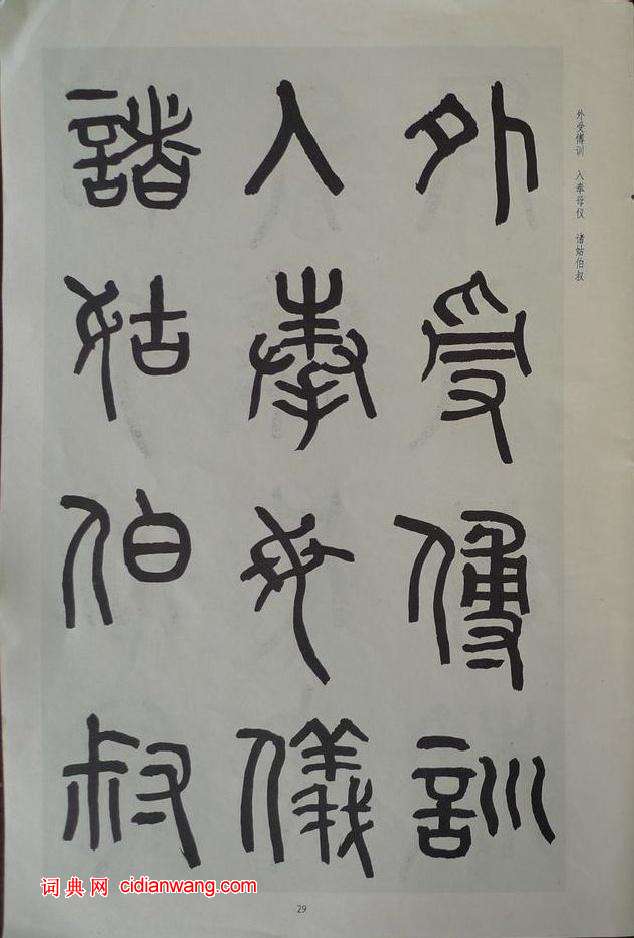 外受傅訓
入奉母儀
諸姑伯叔
外受傅训 入奉母仪 诸姑伯叔
词典网 cidianwang.com
29